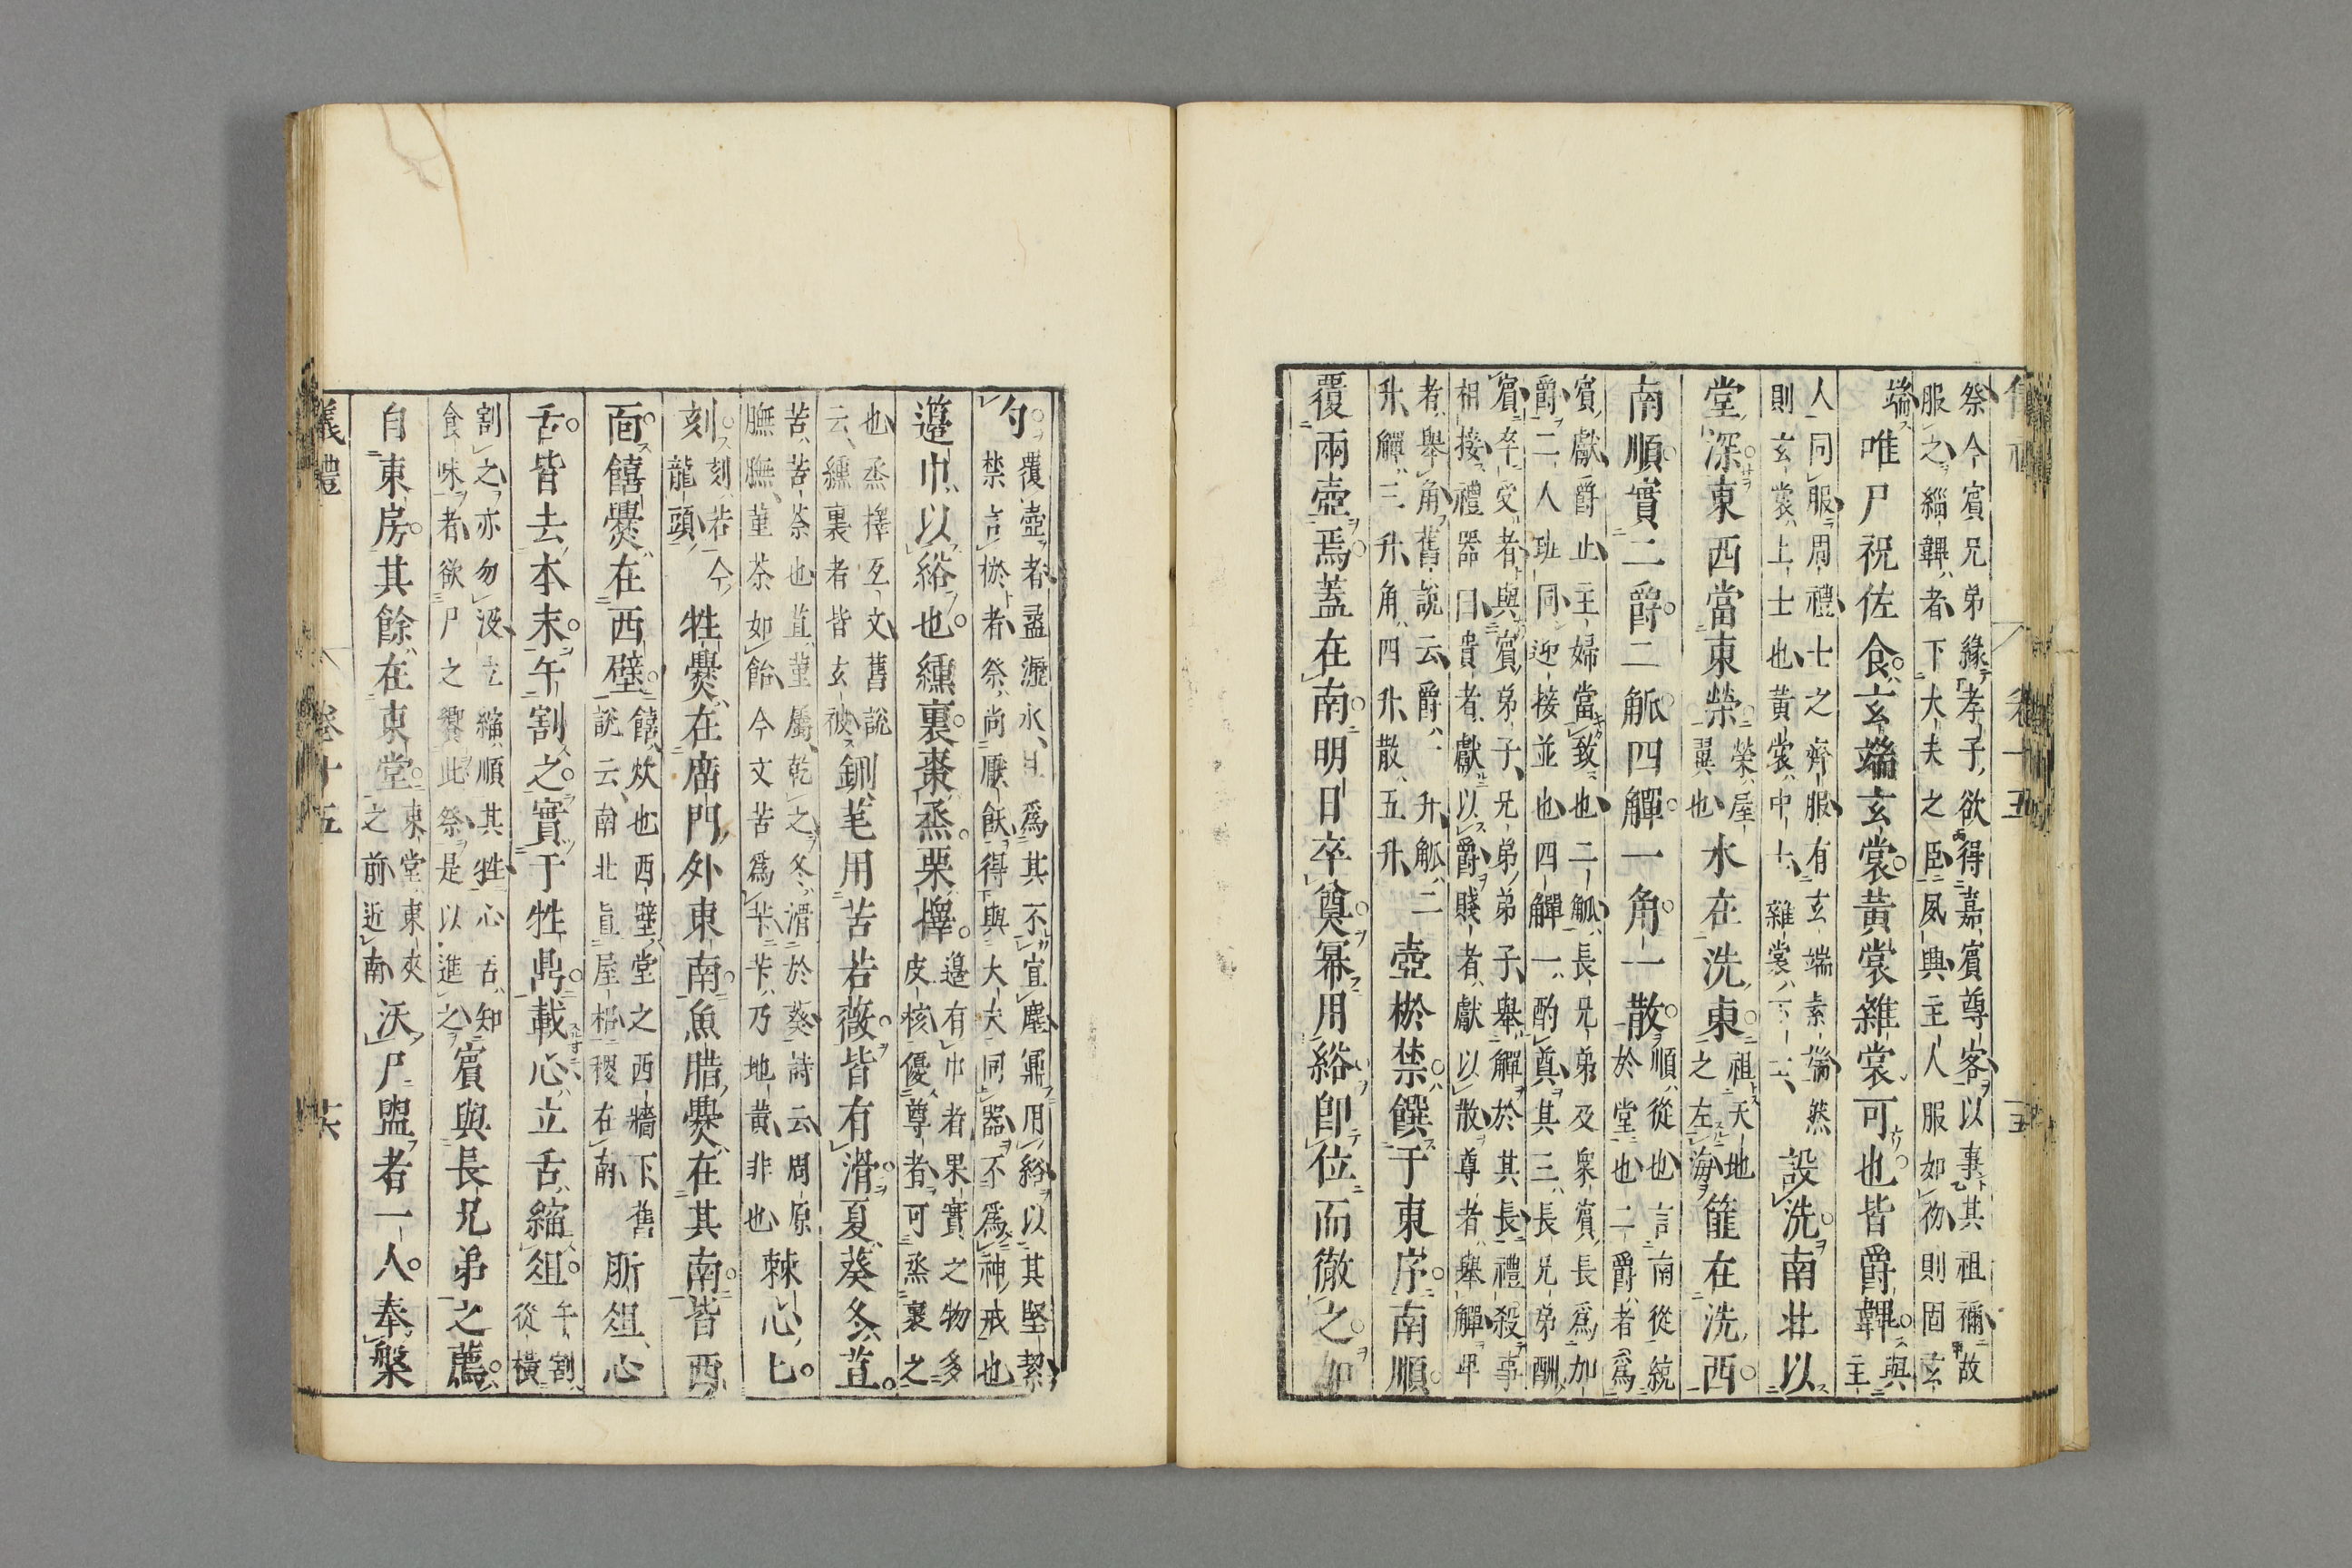 祭今賓兄弟緣孝子欲得嘉賓尊客以事其祖禰故
服之緇韠者下大夫之臣夙興主人服如初則固玄
端唯尸祝佐食玄端玄裳黃裳雜裳可也皆爵韠與主
人同服周禮士之齊服有玄端素端然
則玄裳上士也黃裳中士雜裳下士設洗南北以
堂深東西當東榮榮屋翼也水在洗東祖天地之左海篚在洗西
南順實二爵二觚四觶一角一散順從也言南從統於堂也二爵者為
賓獻爵止主婦當致也二觚長兄弟及衆賓長爲加
爵二人班同迎接並也四觶一酌奠其三長兄弟酬
賓卒受者與賓弟子兄弟弟子舉觶於其長禮殺事
相接禮器曰貴者獻以爵賤者獻以散尊者舉觶卑
者舉角舊說云爵一升觚二
升觶三升角四升散五升壺棜禁饌于東序南順
覆兩壺焉蓋在南明日卒奠冪用綌即位而徹之加
勺覆壺者盝瀝水且爲其不宜塵冪用綌以其堅潔
禁言棜者祭尚厭飫得與大夫同器不爲神戒也
籩巾以綌也纁裏棗烝栗擇籩有巾者果實之物多皮核優尊者可烝裹之
也烝擇互文舊說
云纁裏者皆玄被鉶芼用苦若薇皆有滑夏葵冬荁
苦苦荼也荁菫屬乾之冬滑於葵詩云周原
膴膴菫荼如飴今文苦爲芐芐乃地黃非也棘心匕
刻刻若今龍頭牲爨在廟門外東南魚腊爨在其南皆西
面饎爨在西壁饎炊也西壁堂之西牆下舊說云南北直屋梠稷在南肵俎心
舌皆去本末午割之實于牲鼎載心立舌縮俎午割從橫
割之亦勿沒立縮順其牲心舌知
食味者欲尸之饗此祭是以進之賓與長兄弟之薦
自東房其餘在東堂東堂東夾之前近南沃尸盥者一人奉槃
儀禮　卷十五